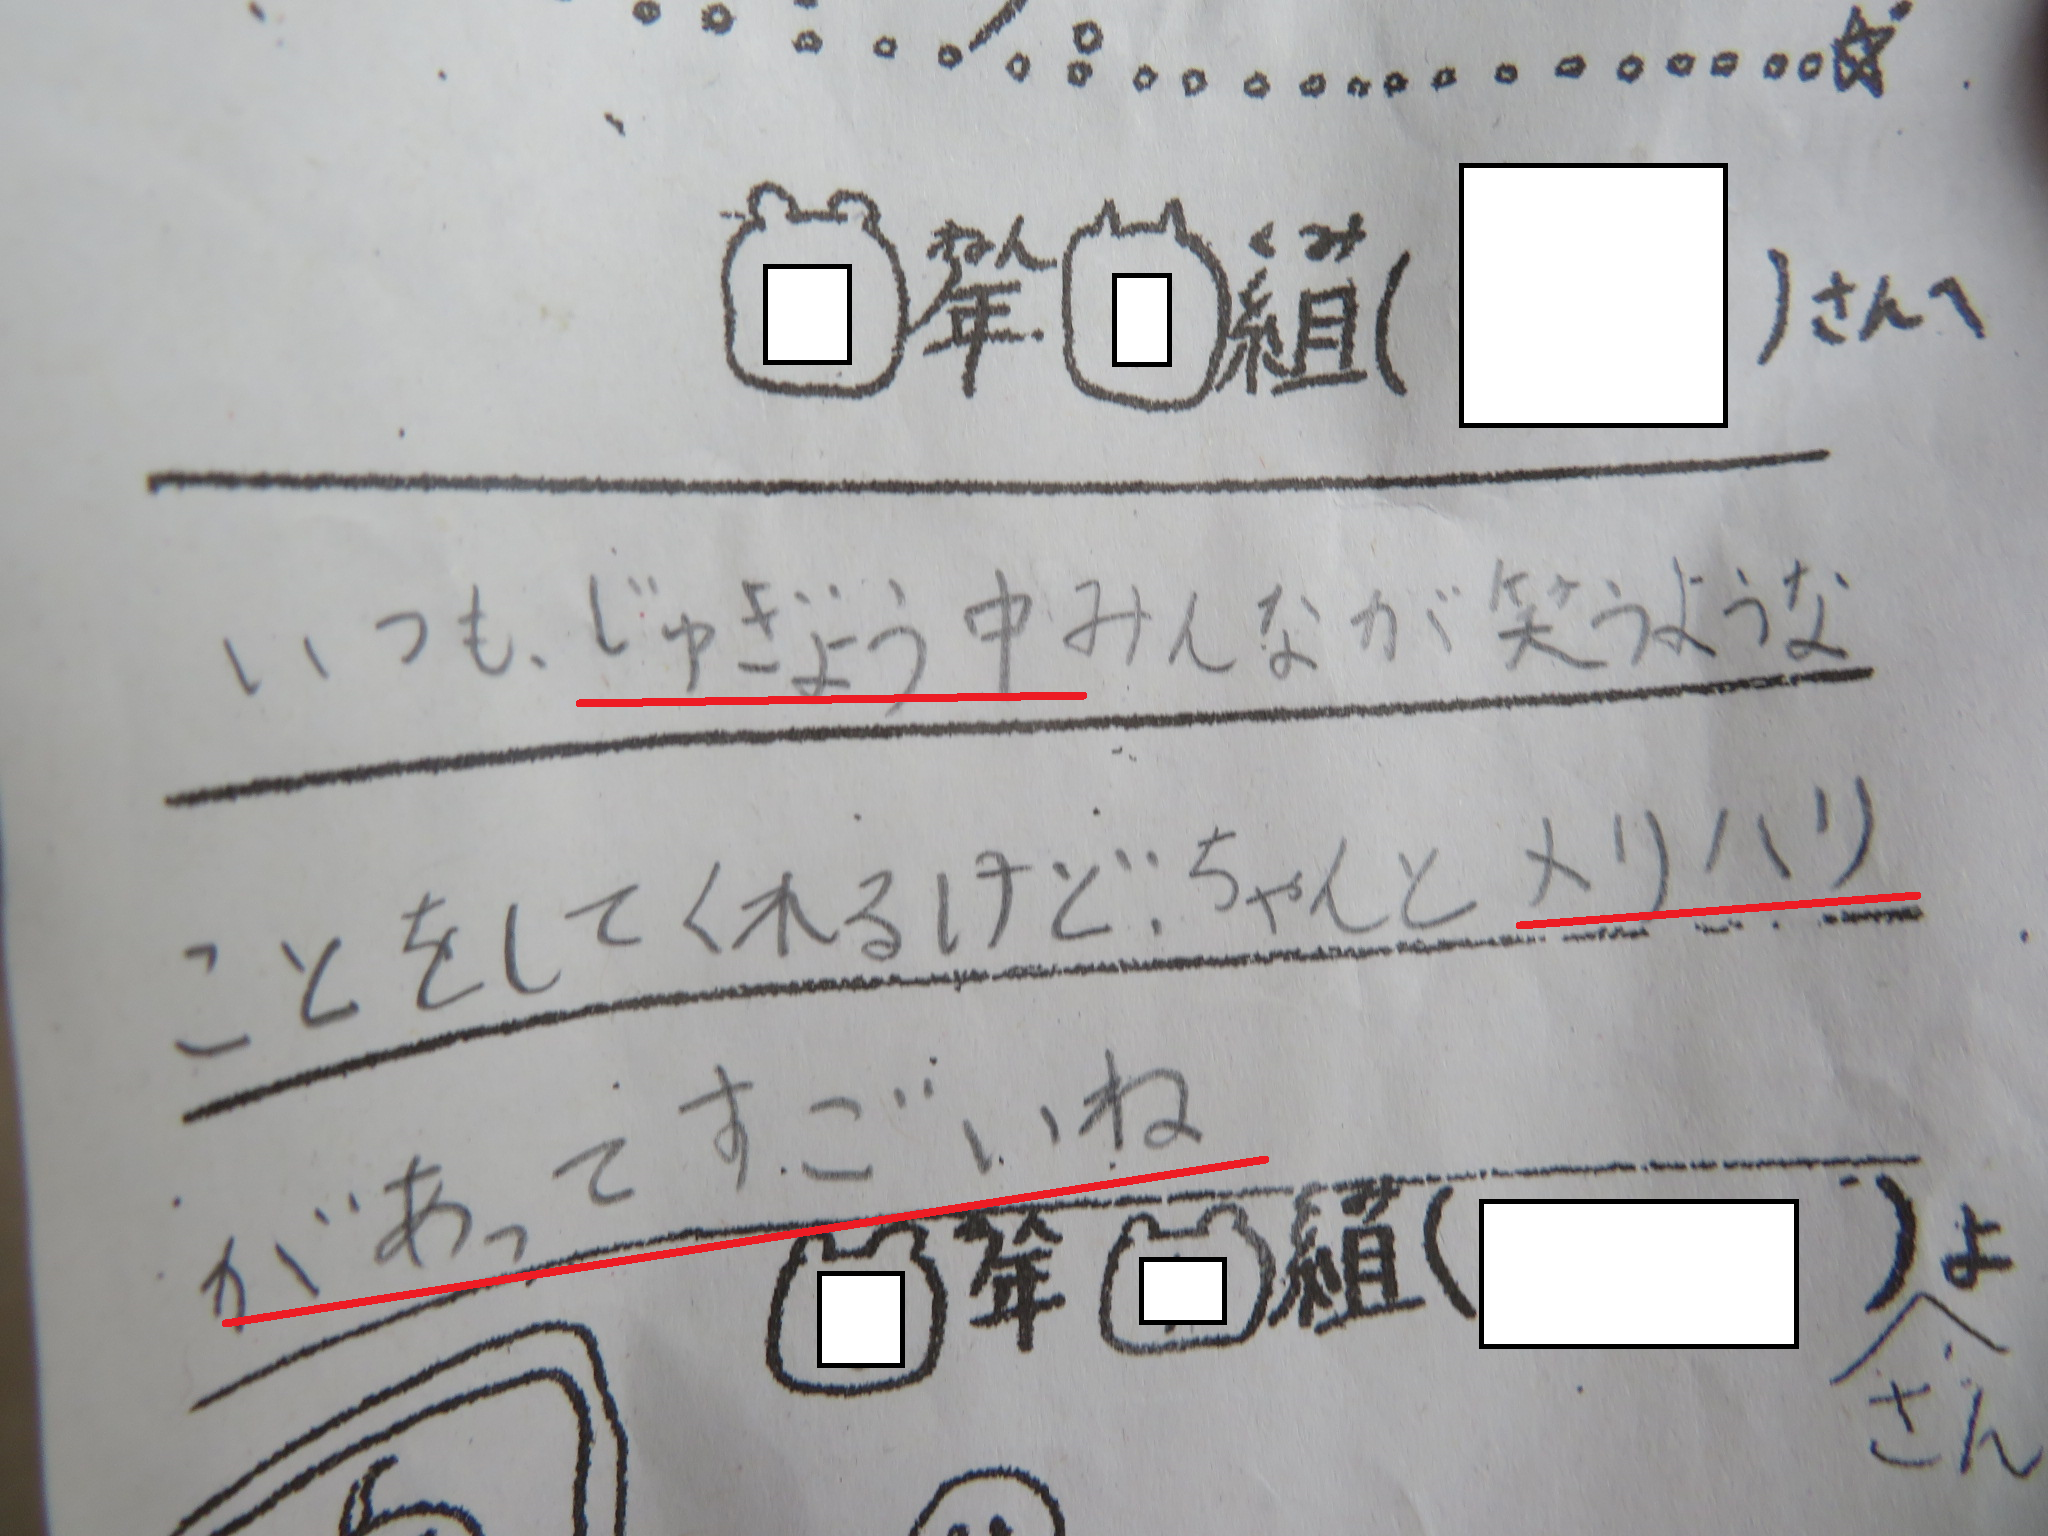 ねん くみ
年 組( )さんへ
いつも、じゅぎょう中みんなが笑うような
ことをしてくれるけど、ちゃんとメリハリ
があってすごいね
年 組( )よ
さん